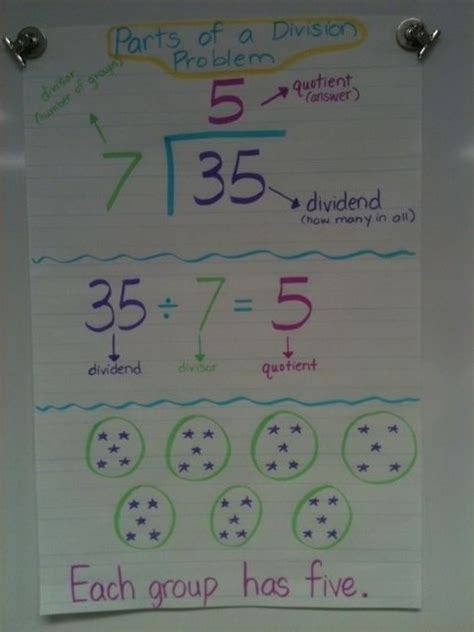 Parts of a Division
Problem
divisor
(number of groups)
5 → quotient
(answer)
7 35
dividend
(how many in all)
35 ÷ 7 = 5
dividend divisor quotient
Each group has five.